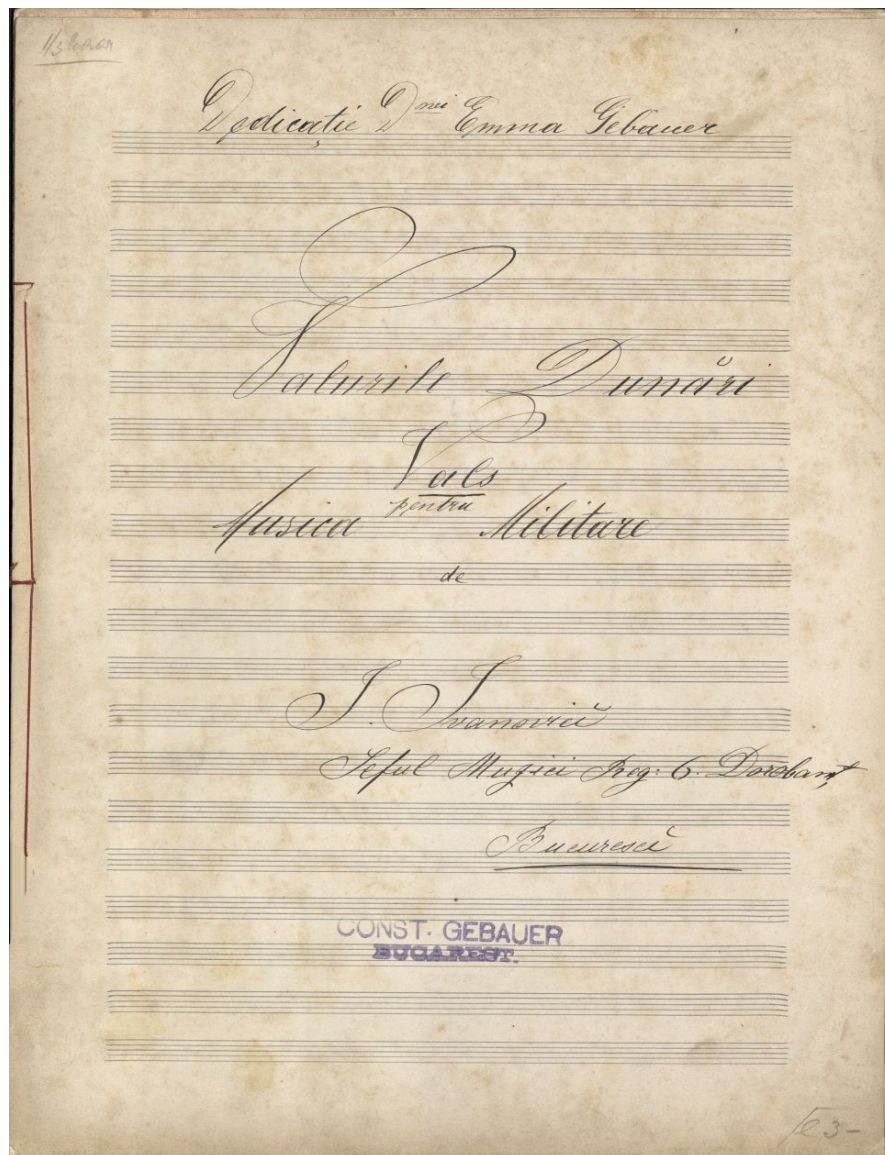 Dedicație Dnei Emma Gebauer
Valurile Dunări
Vals
pentru
Musica Militare
de
J. Ivanovicĭ
Șeful Muzici Reg: 6. Dorobanț
Bucurescĭ
CONST. GEBAUER
BUCAREST.